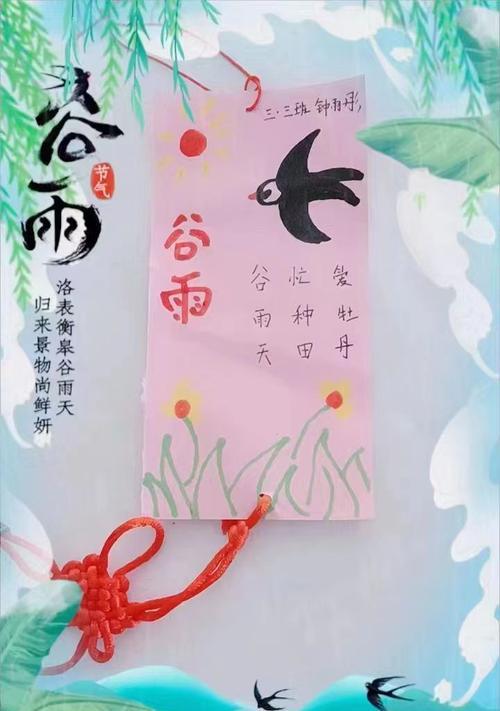 谷雨
节气
洛表衡皋谷雨天
归来景物尚鲜妍
三·三班 钟雨彤
谷雨
谷雨天
忙种田
爱牡丹